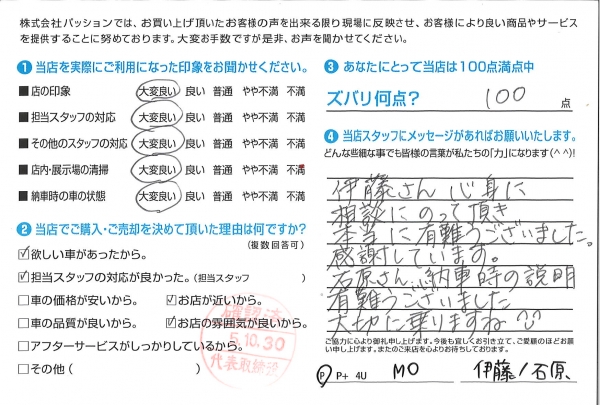 株式会社パッションでは、お買い上げ頂いたお客様の声を出来る限り現場に反映させ、お客様により良い商品やサービス
を提供することに努めております。大変お手数ですが是非、お声を聞かせてください。
1 当店を実際にご利用になった印象をお聞かせください。
■店の印象 大変良い 良い 普通 やや不満 不満
■担当スタッフの対応 大変良い 良い 普通 やや不満 不満
■その他のスタッフの対応 大変良い 良い 普通 やや不満 不満
■店内・展示場の清掃 大変良い 良い 普通 やや不満 不満
■納車時の車の状態 大変良い 良い 普通 やや不満 不満
2 当店でご購入・ご売却を決めて頂いた理由は何ですか?
(複数回答可)
☑欲しい車があったから。
☑担当スタッフの対応が良かった。(担当スタッフ )
□車の価格が安いから。 ☑お店が近いから。
□車の品質が良いから。 ☑お店の雰囲気が良いから。
□アフターサービスがしっかりしているから。
□その他( )
確認済
5.10.30
代表取締役
3 あなたにとって当店は100点満点中
ズバリ何点? 100 点
4 当店スタッフにメッセージがあればお願いいたします。
どんな些細な事でも皆様の言葉が私たちの「力」になります(^^)!
伊藤さん 心身に
相談にのって頂き
本当に有難うございました。
感謝しています。
石原さん 納車時の説明
有難うございました
大切に乗りますね
ご協力に心より御礼申し上げます。今後も宜しくお引き立て、ご愛顧のほどお願
い申し上げます。またのご来店を心よりお待ちしております。
P P+ 4U MO 伊藤/石原